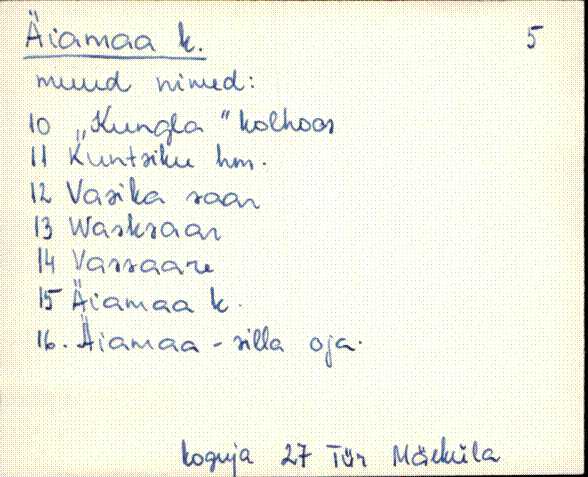 Äiamaa k. 5
muud nimed:
10 „Kungla" kolhoos
11 Kuntsiku hm.
12 Vasika saar
13 Wasksaar
14 Vassaare
15 Äiamaa k.
16. Äiamaa - silla oja.
koguja 27 Tür Mäeküla